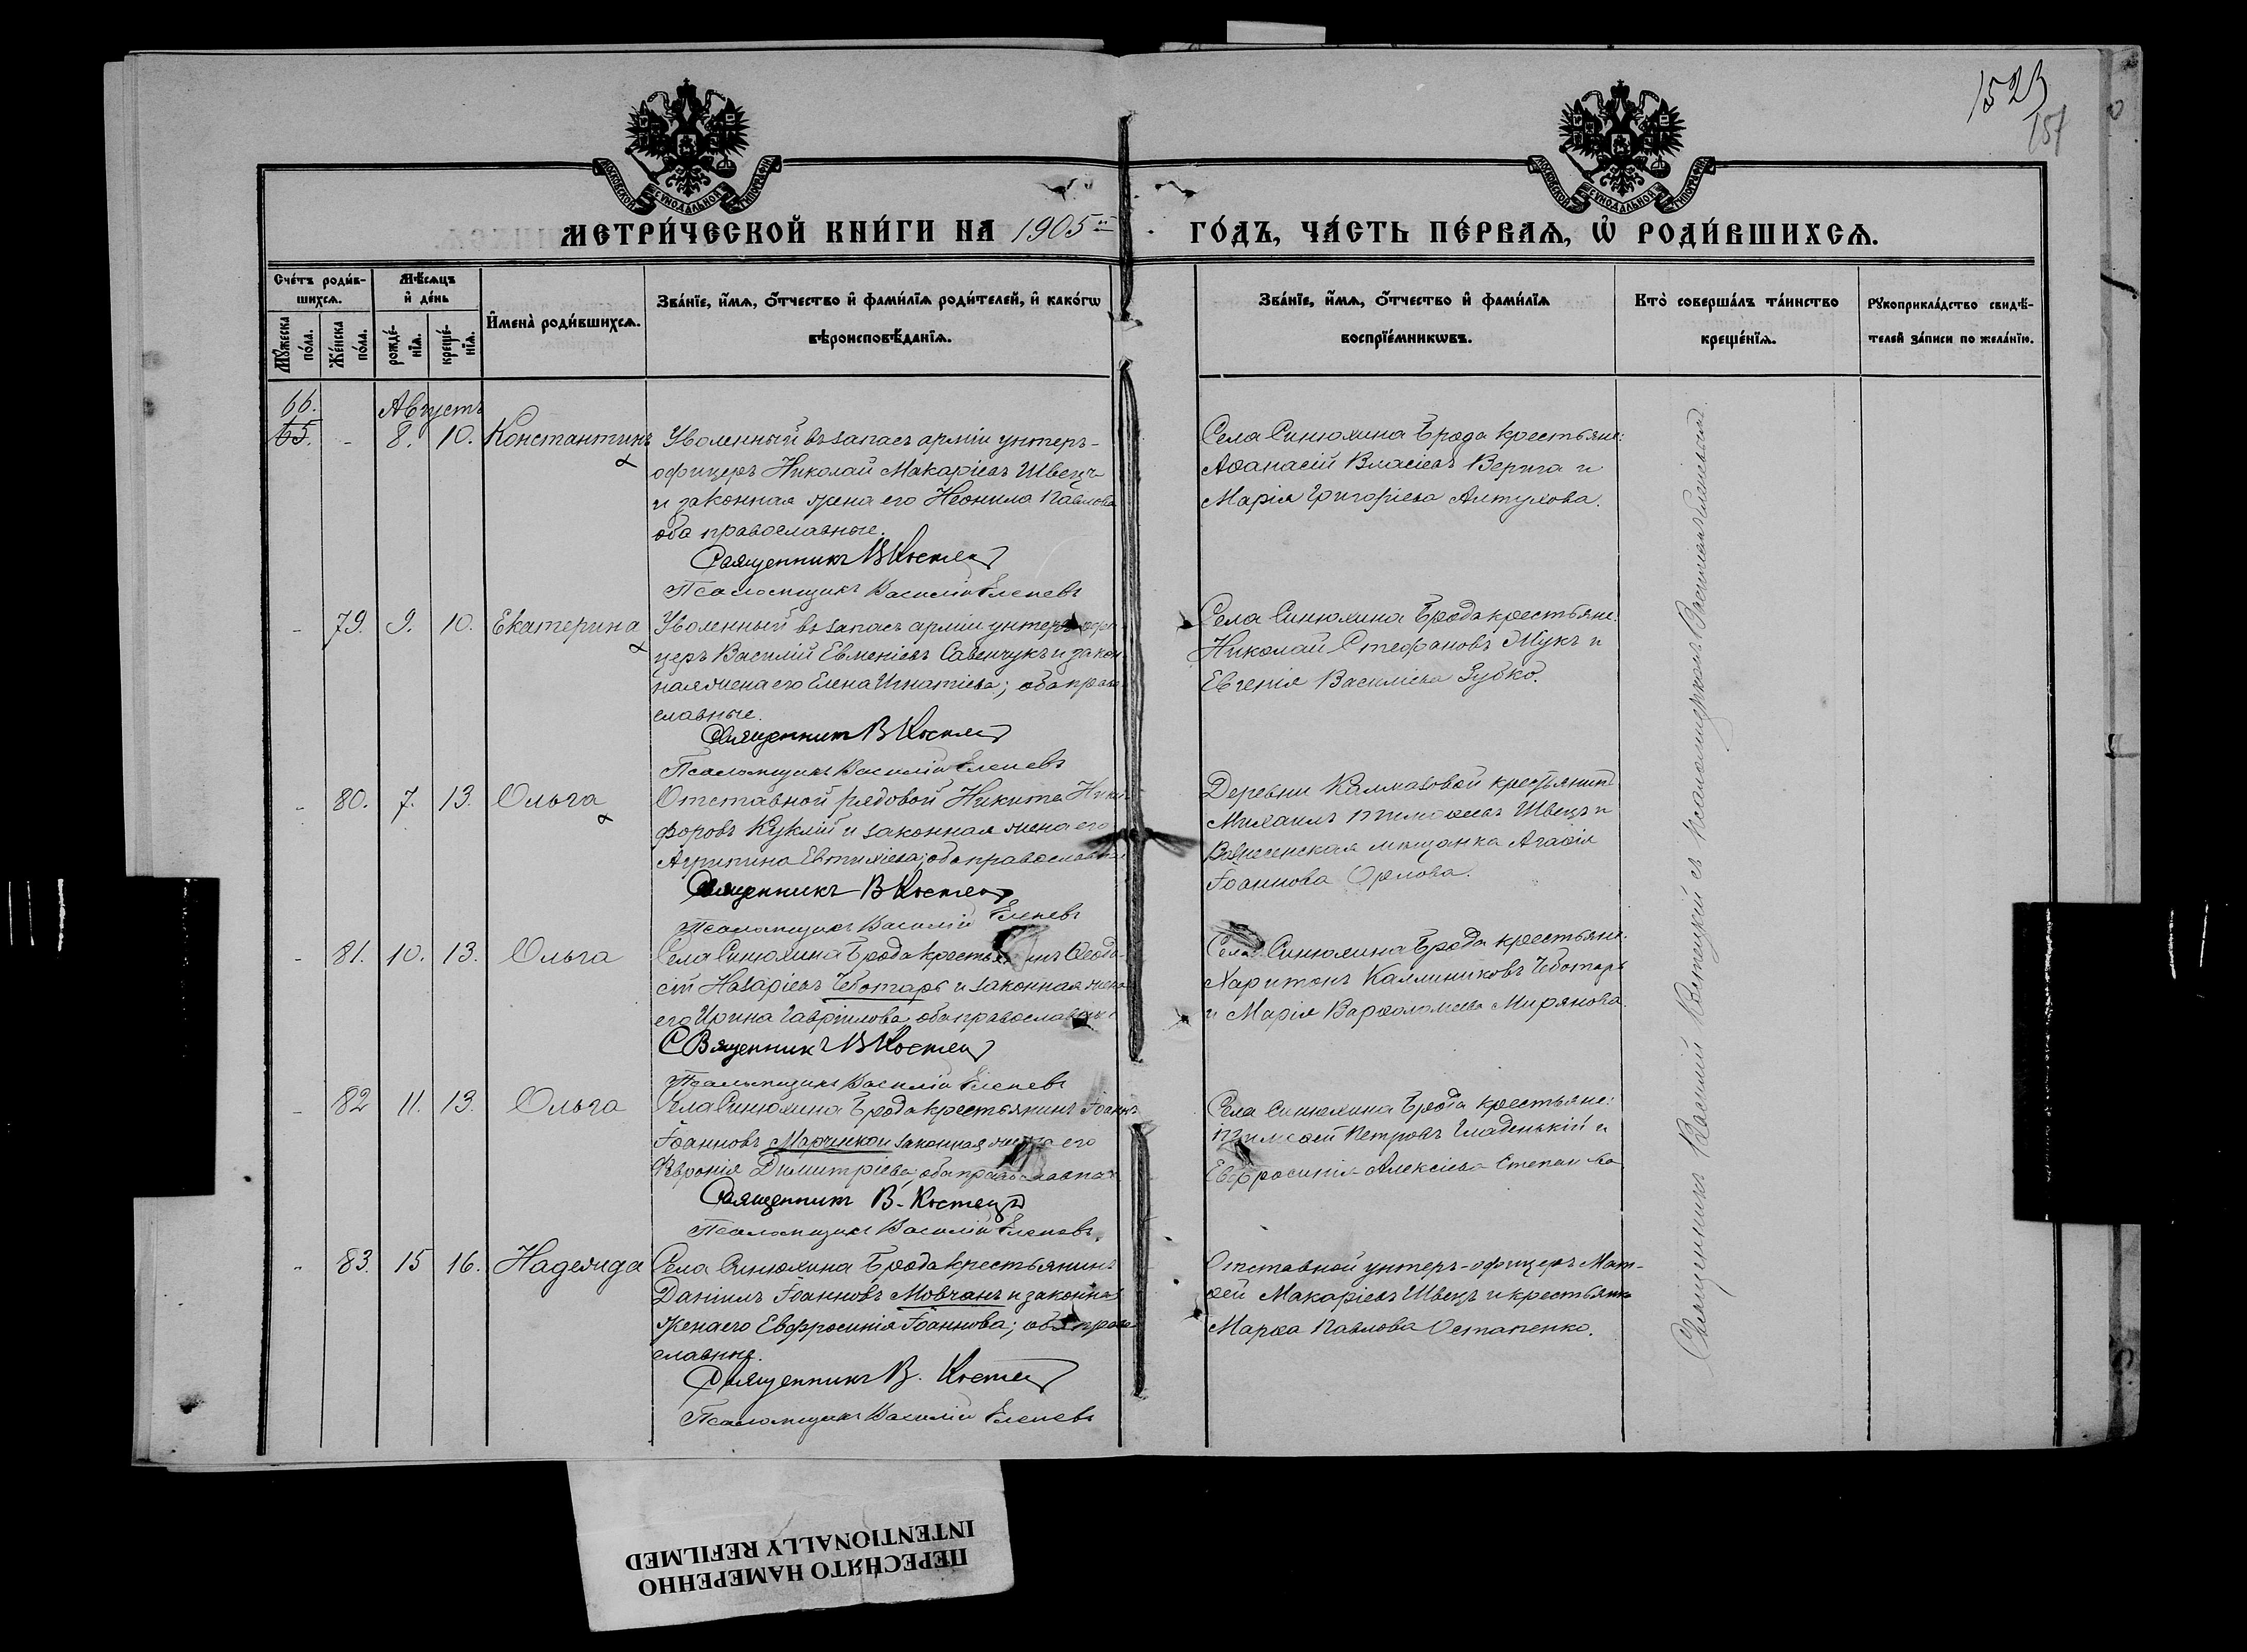 152
151
МОСКОВСКОЙ СѴНОДАЛЬНОЙ ТИПОГРАФІИ
МОСКОВСКОЙ СѴНОДАЛЬНОЙ ТИПОГРАФІИ
МЕТРИ́ЧЕСКОЙ КНИ́ГИ НА 1905й ГО́ДЪ, ЧА́СТЬ ПЕ́РВАѦ, Ѡ҆ РОДИ́ВШИХСѦ.
Сче́тъ роди́в-
шихсѧ.
Мꙋ́жеска по́ла.
Же́нска по́ла.
Мѣ́сѧцъ
и҆ де́нь
рожде́-нїѧ.
креще́-нїѧ.
И҆мена̀ роди́вшихсѧ.
Зва́нїе, и҆́мѧ, ѻ҆́тчество и҆ фами́лїѧ роди́телей, и҆ како́гѡ
вѣроисповѣ́данїѧ.
Зва́нїе, и҆́мѧ, ѻ҆́тчество и҆ фами́лїѧ
воспрїе́мникѡвъ.
Кто̀ соверша́лъ та́инство
креще́нїѧ.
Рꙋкоприкла́дство свидѣ́-
телей за́писи по жела́нїю.
66.
Августъ
65. - 8. 10. Константинъ
Уволенный въ запасъ арміи унтеръ-
офицеръ Николай Макаріевъ Швецъ
и законная жена его Неонила Павлова
оба православные.
Священникъ В Костец
Псаломщикъ Василій Еленевъ
Села Синюхина Брода крестьяне:
Аѳанасій Власіевъ Верига и
Марія Григоріева Алтухова.
- 79. 9. 10. Екатерина
Уволенный въ запасъ арміи унтеръ-офи
церъ Василій Евменіевъ Савенчукъ и закон
ная жена его Елена Игнатіева; оба право
славные.
Священникъ В Костец
Псаломщикъ Василій Еленевъ
Села Синюхина Брода крестьяне:
Николай Стефановъ Жукъ и
Евгенія Василіева Зубко.
- 80. 7. 13. Ольга
Отставной рядовой Никита Ники
форовъ Куклій и законная жена его
Агрипина Евтихіева; оба православные
Священникъ В Костец
Псаломщикъ Василій Еленевъ
Деревни Калмазовой крестьянинъ
Михаилъ Тимоѳеевъ Швецъ и
Вознесенская мѣщанка Агаѳія
Іоаннова Орлова.
- 81. 10. 13. Ольга
Села Синюхина Брода крестьянинъ Ѳеодо
сій Назаріевъ Чеботарь и законная жена
его Ирина Гавріилова; оба православные
Священникъ В Костец
Псаломщикъ Василій Еленевъ
Села Синюхина Брода крестьяне:
Харитонъ Каллиниковъ Чеботарь
и Марія Варѳоломеева Мирянова.
- 82 11. 13. Ольга
Села Синюхина Брода крестьянинъ Іоаннъ
Іоанновъ законная жена его
Февронія Димитріева; оба православные
Священникъ В. Костец
Псаломщикъ Василій Еленевъ.
Села Синюхина Брода крестьяне:
Тимоѳей Петровъ Гладенькій и
Евфросинія Алексіева
- 83. 15 16. Надежда
Села Синюхина Брода крестьянинъ
Даніилъ Іоанновъ Мовчанъ и законная
жена его Евфросинія Іоаннова; оба право
славные.
Священникъ В. Костец
Псаломщикъ Василій Еленевъ
Отставной унтеръ-офицеръ Мат-
ѳей Макаріевъ Швецъ и крестьянка
Марѳа Павлова Остапенко.
Священникъ Василій Костецкій съ псаломщикомъ Василіемъ Еленевымъ.
ПЕРЕСНЯТО НАМЕРЕННО
INTENTIONALLY REFILMED